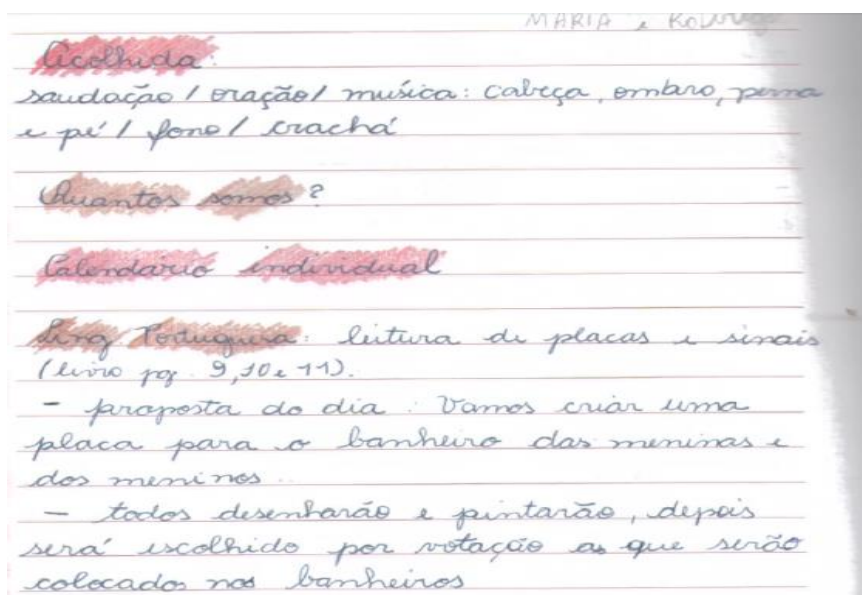 MARIA e Rodrigo
Acolhida:
saudação / oração / música: cabeça, ombro, perna
e pé / fone / crachá
Quantos somos?
Calendário individual
Ling Portuguesa: leitura de placas e sinais
(livro pg. 9, 10 e 11).
- proposta do dia: Vamos criar uma
placa para o banheiro das meninas e
dos meninos.
- todos desenharão e pintarão, depois
será escolhido por votação as que serão
colocados nos banheiros